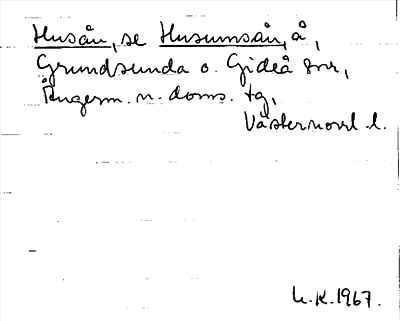 Husån, se Husumsån, å,
Grundsunda o. Gideå snr,
Ångerm. n. doms. tg,
Västernorrl. l.
L.K. 1967.